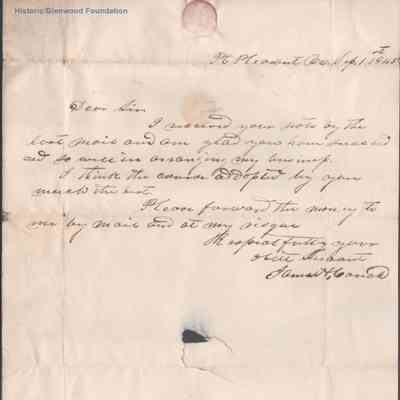 Historic Glenwood Foundation
Pt Pleasant Va Sep 1st 1845
Dear Sir
I received your note by the
last mail and am glad you have succeed
ed so well in arranging my business.
I think the course adopted by you
much the best.
Please forward the money to
me by mail and at my risque
Respectfully your
Obt Servant
James H. Couch